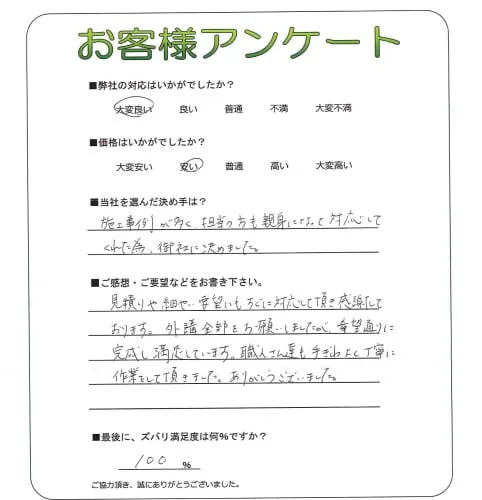 お客様アンケート
■弊社の対応はいかがでしたか？
大変良い 良い 普通 不満 大変不満
■価格はいかがでしたか？
大変安い 安い 普通 高い 大変高い
■当社を選んだ決め手は？
施工事例が多く、担当の方も親身になって対応して
くれた為、御社に決めました。
■ご感想・ご要望などをお書き下さい。
見積りや細かい要望にもすぐに対応して頂き感謝して
おります。外講全部をお願いしましたが、希望通りに
完成し満足しています。職人さん達も手ぎわよく丁寧に
作業をして頂きました。ありがとうございました。
■最後に、ズバリ満足度は何%ですか？
100 %
ご協力頂き、誠にありがとうございました。